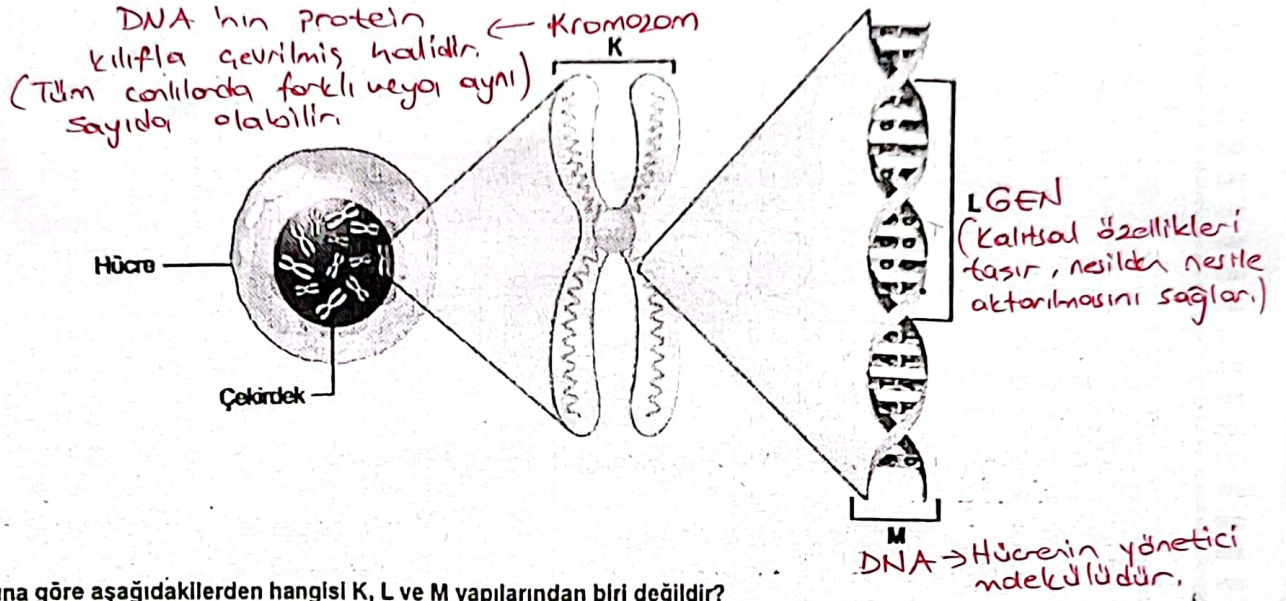 DNA 'nın protein
kılıfla çevrilmiş halidir.
(Tüm canlılarda farklı veya aynı)
sayıda olabilir.
← Kromozom
K
Hücre
Çekirdek
L GEN
(Kalıtsal özellikleri
taşır, nesilden nesile
aktarılmasını sağlar.)
M
DNA → Hücrenin yönetici
molekülüdür.
göre aşağıdakilerden hangisi K, L ve M yapılarından biri değildir?